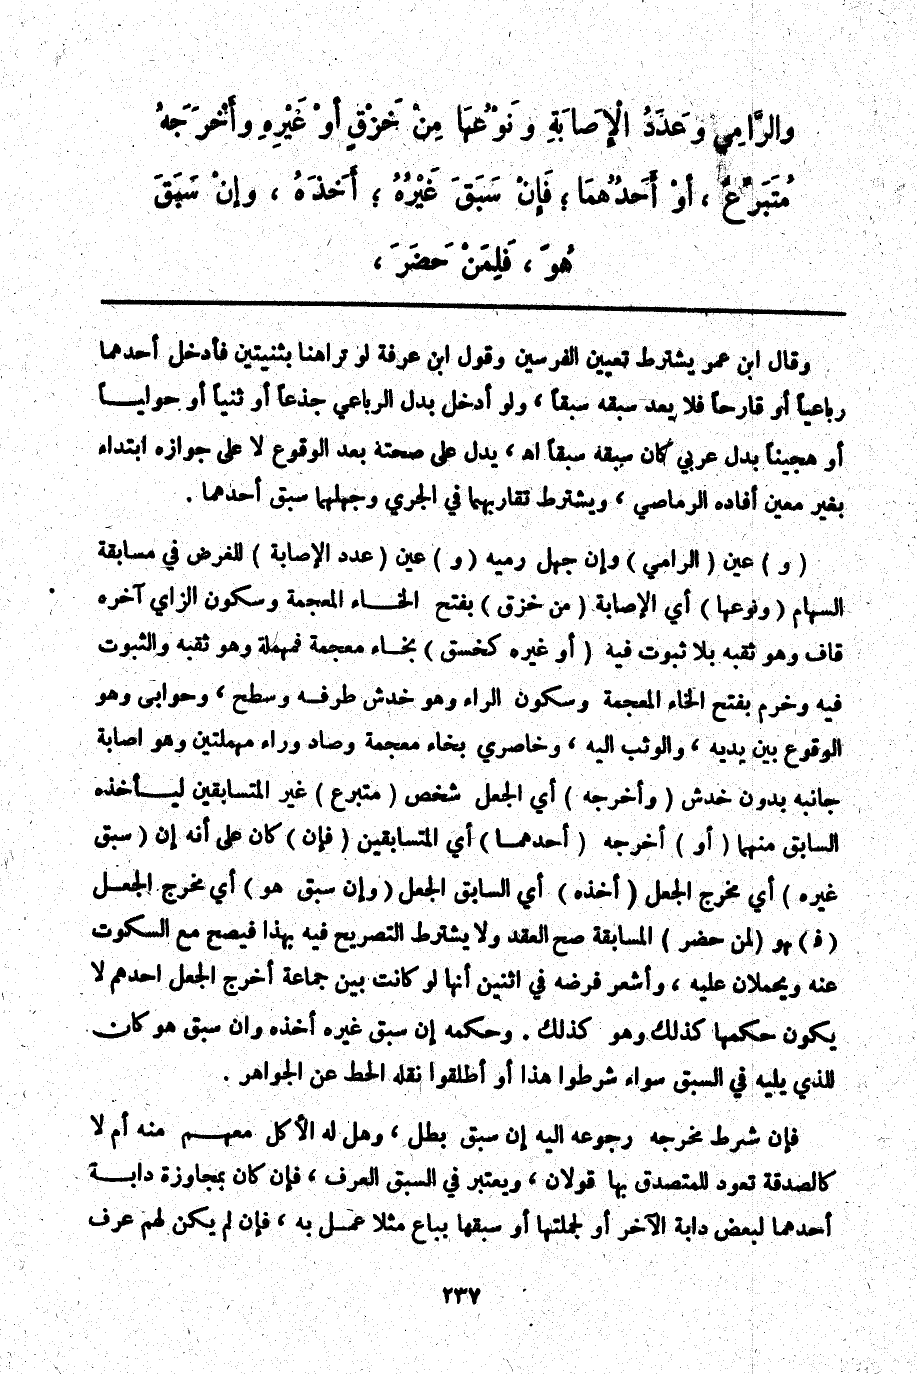 والرَّامِي وَعَدَدُ الْإِصَابَةِ وَنَوْعُهَا مِنْ خَزْقٍ أَوْ غَيْرِهِ وأَخْرَجَهُ
مُتَبَرِّعٌ ، أوْ أَحَدُهُمَا ؛ فَإِنْ سَبَقَ غَيْرُهُ ؛ أَخَذَهُ ، وإنْ سَبَقَ
هُوَ ، فَلِمَنْ حَضَرَ ،
وقال ابن عمر يشترط تعيين الفرسين وقول ابن عرفة لو تراهنا بثنيتين فأدخل أحدهما
رباعياً أو قارحاً فلا يعد سبقه سبقاً ، ولو أدخل بدل الرباعي جذعاً أو ثنياً أو حوليـــاً
أو هجيناً بدل عربي كان سبقه سبقاً اه ، يدل على صحته بعد الوقوع لا على جوازه ابتداء
بغير معين أفاده الرماصي ، ويشترط تقاربهما في الجري وجهلهما سبق أحدهما .
( و ) عين ( الرامي ) وإن جهل رميه ( و ) عين ( عدد الإصابة ) للفرض في مسابقة
السهام ( ونوعها ) أي الإصابة ( من خزق ) بفتح الخـــاء المعجمة وسكون الزاي آخره
قاف وهو ثقبه بلا ثبوت فيه ( أو غيره كخسق ) بخـــاء معجمة فمهملة وهو ثقبه والثبوت
فيه وخرم بفتح الخاء المعجمة وسكون الراء وهو خدش طرفـــه وسطح ، وحوابى وهو
الوقوع بين يديه ، والوثب اليه ، وخاصري بخاء معجمة وصاد وراء مهملتين وهو اصابة
جانبه بدون خدش ( وأخرجه ) أي الجعل شخص ( متبرع ) غير المتسابقين ليـــأخذه
السابق منهما ( أو ) أخرجه ( أحدهمـــا ) أي المتسابقين ( فإن ) كان على أنه إن ( سبق
غيره ) أي مخرج الجعل ( أخذه ) أي السابق الجعل ( وإن سبق هو ) أي مخرج الجعـــل
( فـ ) هو ( لمن حضر ) المسابقة صح العقد ولا يشترط التصريح فيه بهذا فيصح مع السكوت
عنه ويحملان عليه ، وأشعر فرضه في اثنين أنها لو كانت بين جماعة أخرج الجعل احدهم لا
يكون حكمها كذلك وهو كذلك . وحكمه إن سبق غيره أخذه وان سبق هو كان
للذي يليه في السبق سواء شرطوا هذا أو أطلقوا نقله الحط عن الجواهر .
فإن شرط مخرجه رجوعه اليه إن سبق بطل ، وهل له الأكل معهـــم منه أم لا
كالصدقة تعود للمتصدق بها قولان ، ويعتبر في السبق العرف ، فإن كان بمجاوزة دابـــة
أحدهما لبعض دابة الآخر أو لجملتها أو سبقها بباع مثلا عمـــل به ، فإن لم يكن لهم عرف
٢٣٧